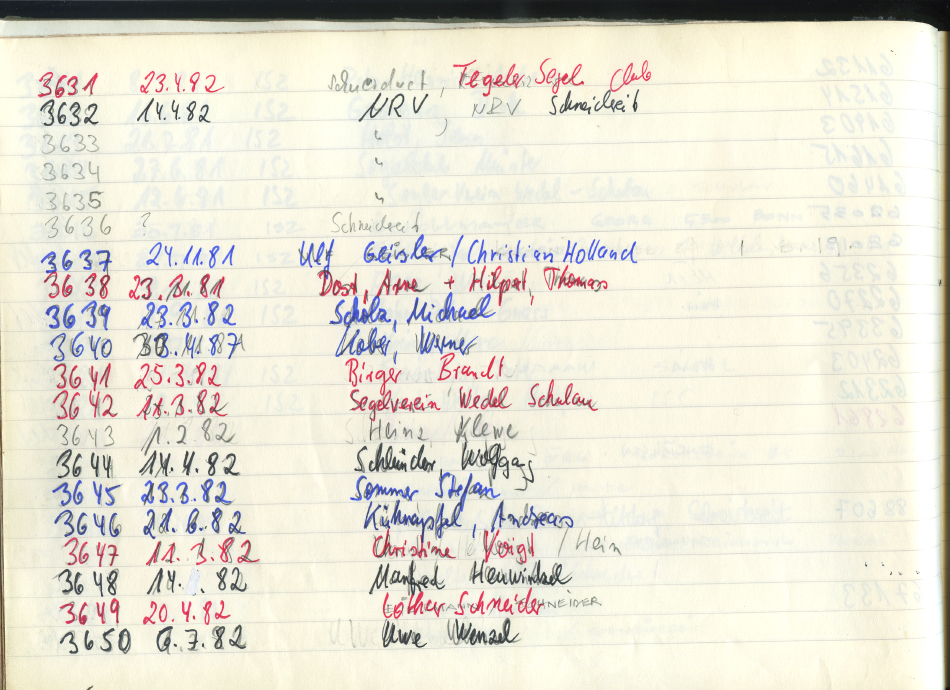 3631 23.4.82 Tegeler Segel Club
3632 14.4.82 NRV, NRV Schneidreit
3633 "
3634 "
3635 "
3636 ? Schneidreit
3637 24.11.81 Ulf Geisler/Christian Holland
3638 23.11.81 Dost, Arne + Hilpert, Thomas
3639 23.3.82 Scholz, Michael
3640 Werner
3641 25.3.82 Birger Brandt
3642 3.82 Segelverein Wedel Schulau
3643 1.2.82 Heinz Klewe
3644 14.4.82 Wolfgang
3645 23.3.82 Sommer Stefan
3646 21.6.82 Kühnapfel, Andreas
3647 11.3.82 Christine Voigt / Hein
3648 14. 82 Manfred
3649 20.4.82 Lothar Schneider
3650 6.7.82 Uwe Wenzel